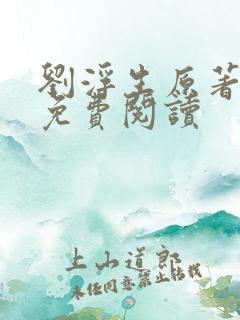 劉浮生原著
免費閱讀
上山道郎
未经同意禁止転載